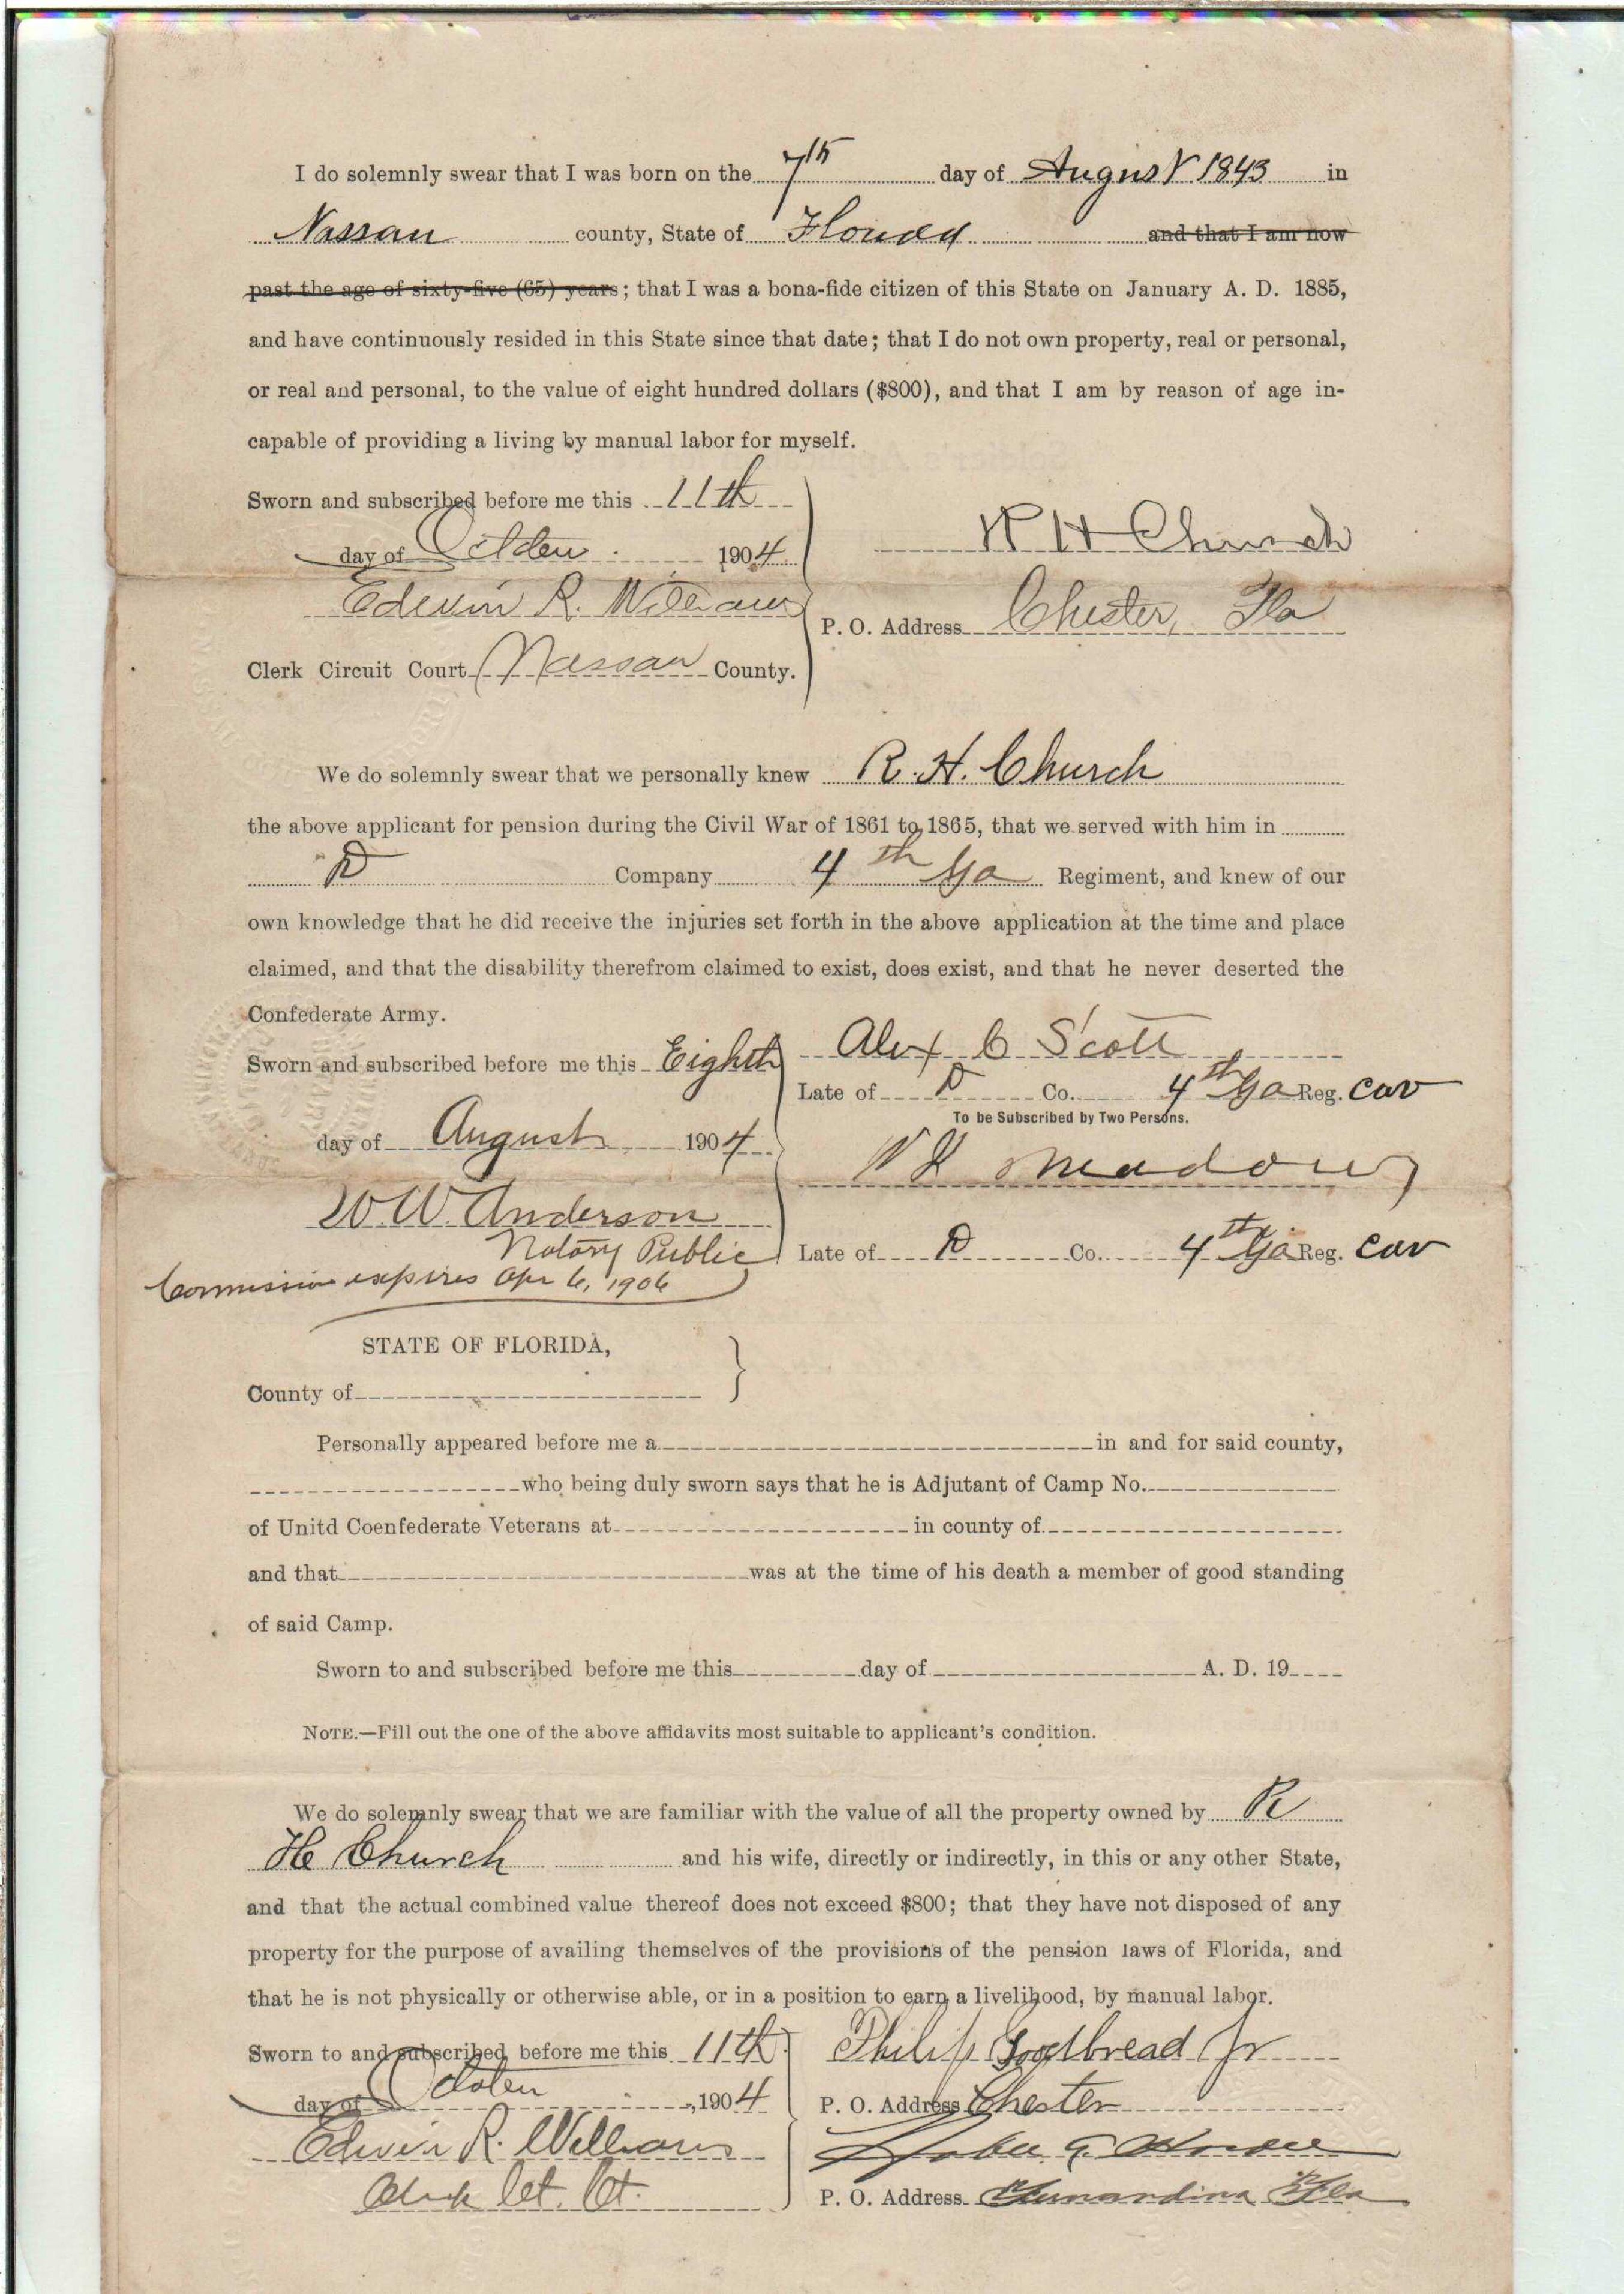 I do solemnly swear that I was born on the 7th day of August 1843 in
Nassau county, State of Florida and that I am now
past the age of sixty-five (65) years; that I was a bona-fide citizen of this State on January A. D. 1885,
and have continuously resided in this State since that date; that I do not own property, real or personal,
or real and personal, to the value of eight hundred dollars ($800), and that I am by reason of age in-
capable of providing a living by manual labor for myself.
Sworn and subscribed before me this 11th
day of October 1904
R H Church
Edwin R. Williams
P. O. Address Chester, Fla
Clerk Circuit Court Nassau County.
We do solemnly swear that we personally knew R. H. Church
the above applicant for pension during the Civil War of 1861 to 1865, that we served with him in
D Company 4th Ga Regiment, and knew of our
own knowledge that he did receive the injuries set forth in the above application at the time and place
claimed, and that the disability therefrom claimed to exist, does exist, and that he never deserted the
Confederate Army.
Sworn and subscribed before me this Eighth
day of August 1904
W. W. Anderson
Notary Public
Commission expires Apr 6, 1906
Alex C Scott
Late of D Co. 4th Ga Reg. Cav
To be Subscribed by Two Persons.
Meadows
Late of D Co. 4th Ga Reg. Cav
STATE OF FLORIDA,
County of
Personally appeared before me a in and for said county,
who being duly sworn says that he is Adjutant of Camp No.
of Unitd Coenfederate Veterans at in county of
and that was at the time of his death a member of good standing
of said Camp.
Sworn to and subscribed before me this day of A. D. 19
NOTE.—Fill out the one of the above affidavits most suitable to applicant's condition.
We do solemnly swear that we are familiar with the value of all the property owned by R
H Church and his wife, directly or indirectly, in this or any other State,
and that the actual combined value thereof does not exceed $800; that they have not disposed of any
property for the purpose of availing themselves of the provisions of the pension laws of Florida, and
that he is not physically or otherwise able, or in a position to earn a livelihood, by manual labor.
Sworn to and subscribed before me this 11th
day of October, 1904
Edwin R. Williams
Clerk Cct. Ct.
Philip Goodbread Jr
P. O. Address Chester
P. O. Address Fernandina Fla